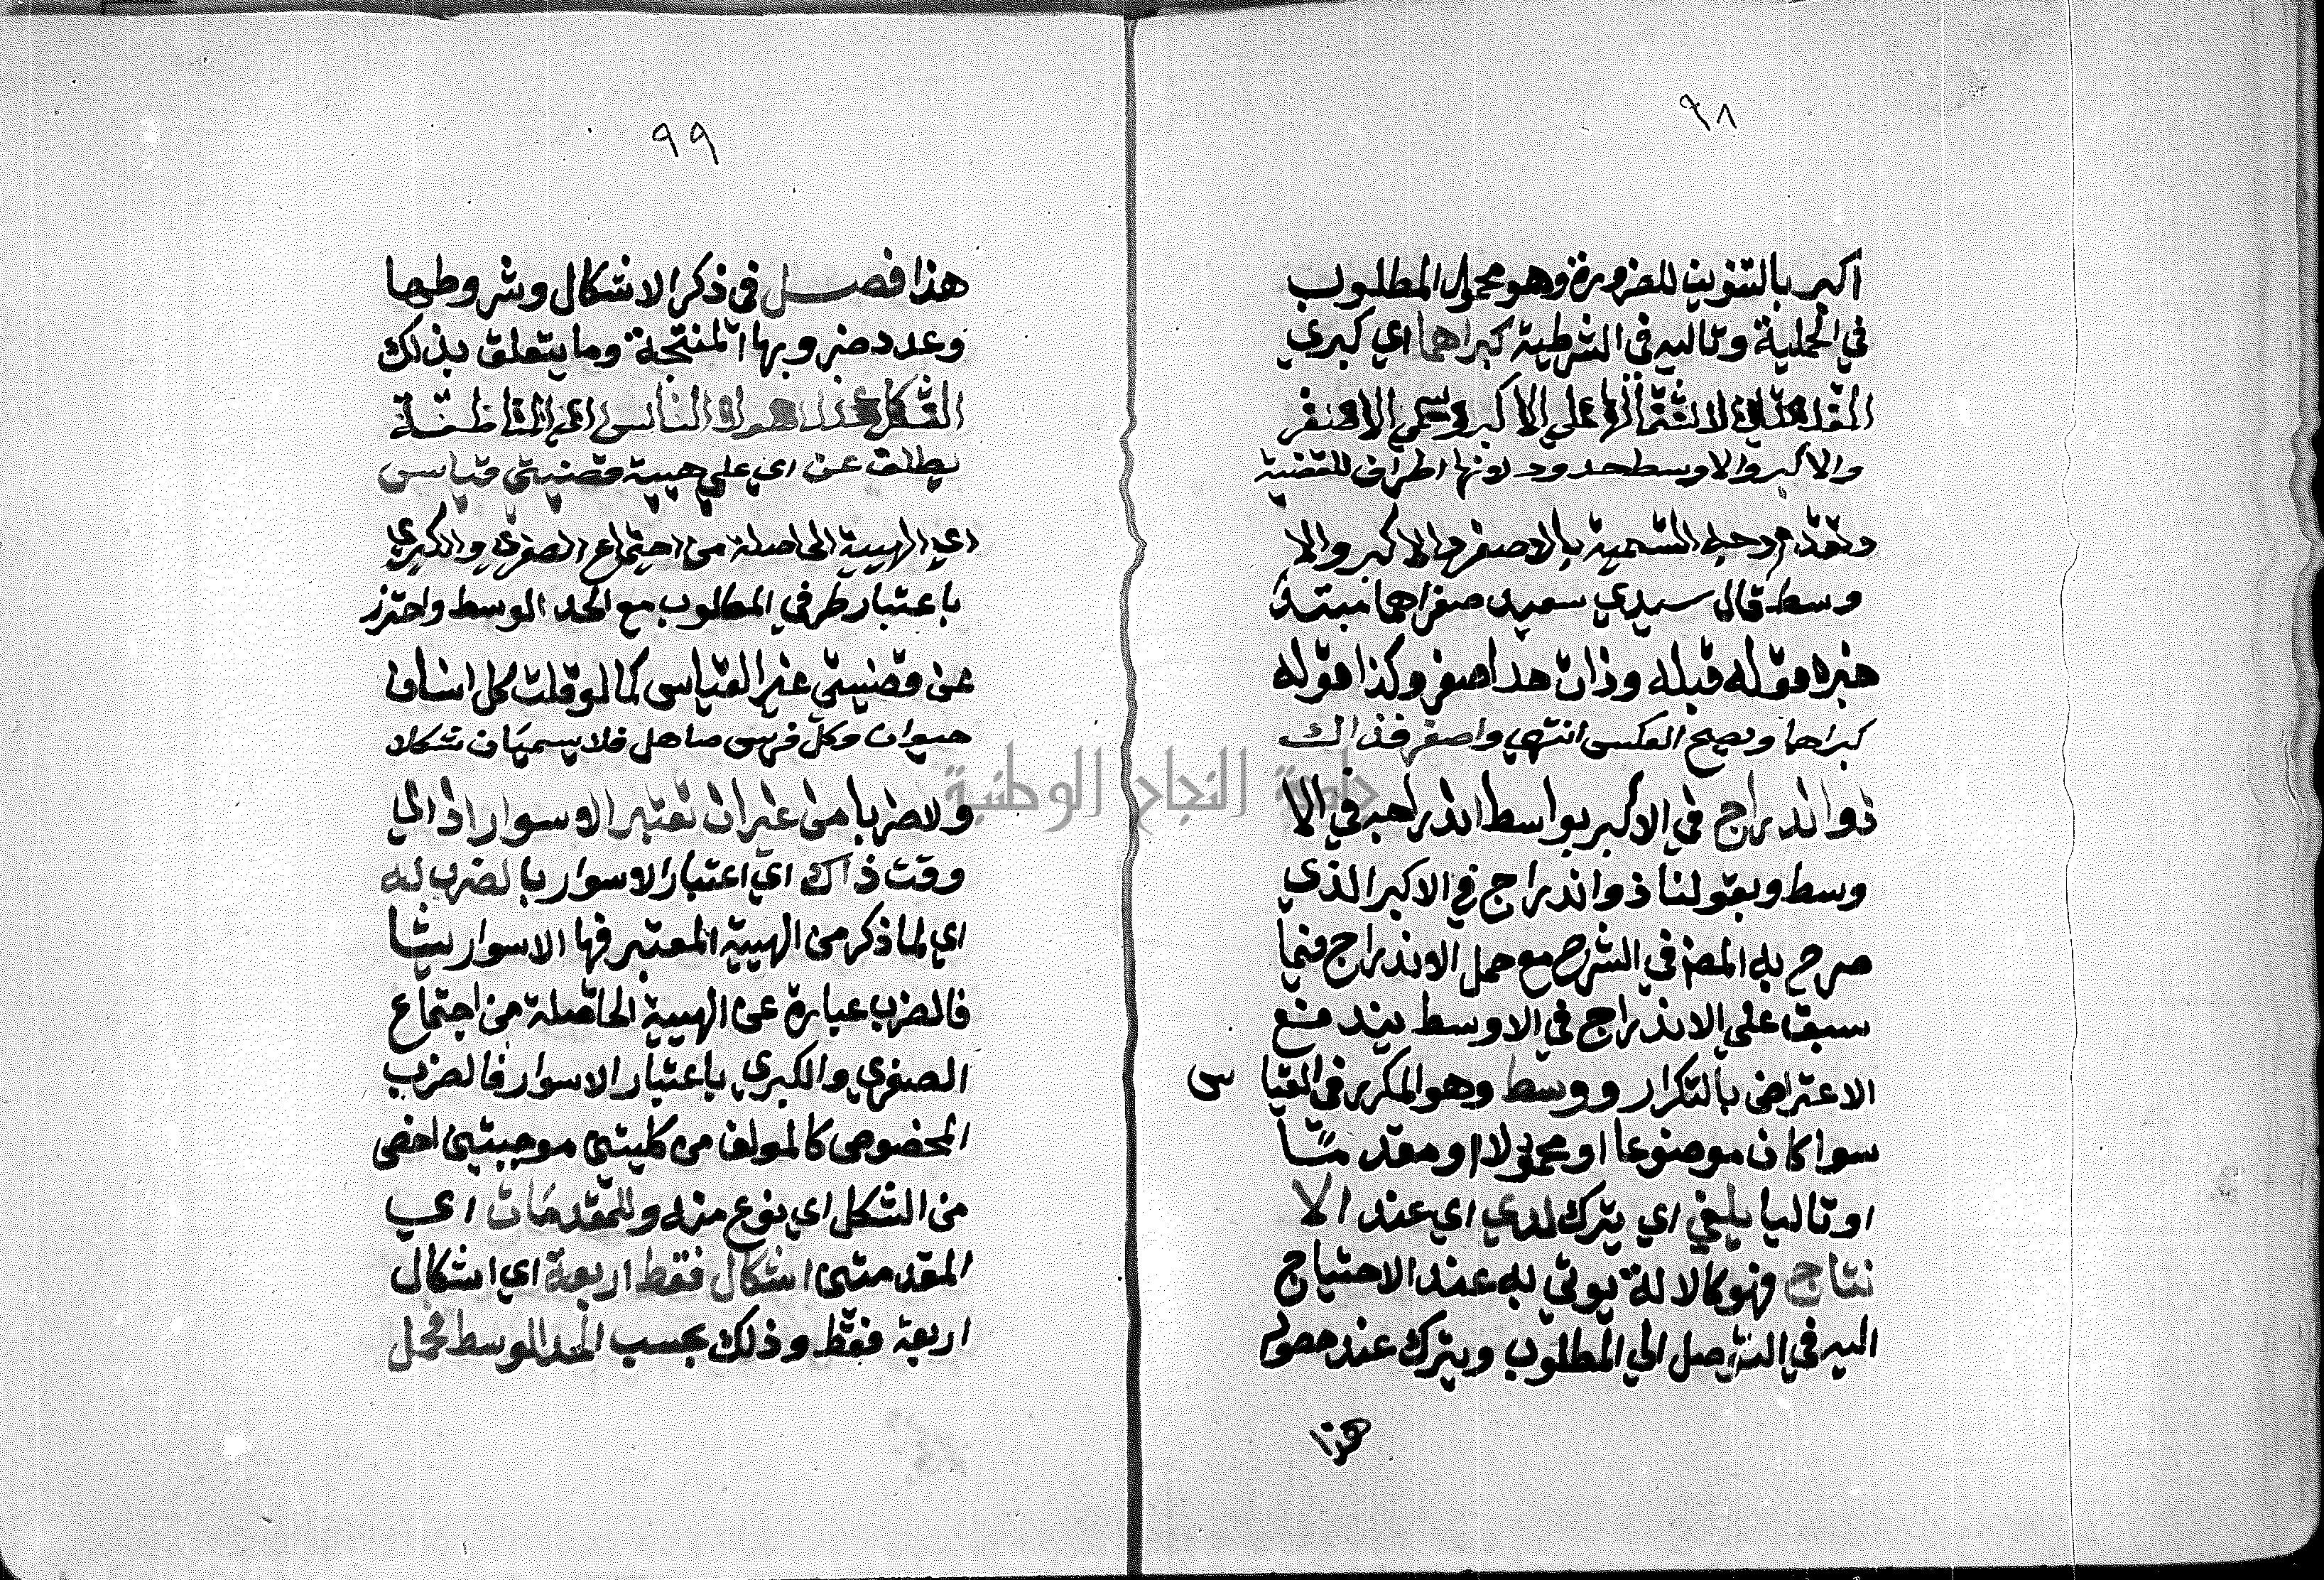 ٩٨
اكبر بالتنوين للضرورة وهو محمول المطلوب
في الحملية وتاليه في الشرطية كبراهما اي كبري
المقدمتين لاشتمالها علي الاكبر ويسمي الاصغر
والاكبر والاوسط حدود لونها اطراف للقضية
وتقدم وجه التسمية بالاصغر والاكبر والا
وسط قال سيدي سعيد صغراهما مبتدا
خبره قوله قبله وذات حد اصغر وكذا قوله
كبراها ويصح العكس انتهي واصغر فذاك
ذو اندراج في الاكبر بواسط اندراجه في الا
وسط وبقولنا ذو اندراج في الاكبر الذي
صرح به المصنف في الشرح مع حمل الاندراج فيما
سبق علي الاندراج في الاوسط يندفع
الاعتراض بالتكرار ووسط وهو المكرر في القيا س
سوا كان موضوعا او محمولا او مقدما
او تاليا يلغي اي يترك لدي اي عند الا
نتاج فهو كالالة يوتي به عند الاحتياج
اليه في التوصل الي المطلوب ويترك عند حصوله
هذا
٩٩
هذا فصل في ذكر الاشكال وشروطها
وعدد ضروبها المنتجة وما يتعلق بذلك
الشكل عند هولا الناس اي المناطقة
يطلق عن اي علي هيية قضيتي قياس
اي الهيية الحاصلة من اجتماع الصغري والكبري
باعتبار طرفي المطلوب مع الحد الوسط واحترز
عن قضيتي غير القياس كما لو قلت كل انسان
حيوان وكل فرس صاهل فلا يسميان شكلا
ولا ضربا من غير ان تعتبر الاسوار اذ الي
وقت ذاك اي اعتبار الاسوار بالضرب له
اي لما ذكر من الهيية المعتبر فيها الاسوار يشا
فالضرب عبارة عن الهيية الحاصلة من اجتماع
الصغري والكبري باعتبار الاسوار فالضرب
المخصوص كالمولف من كليتين موجبتين اخص
من الشكل اي نوع منه وللمقدمات اي
المقدمتين اشكال فقط اربعة اي اشكال
اربعة فقط وذلك بحسب الحد الوسط فحمل
جامعة النجاح الوطنية